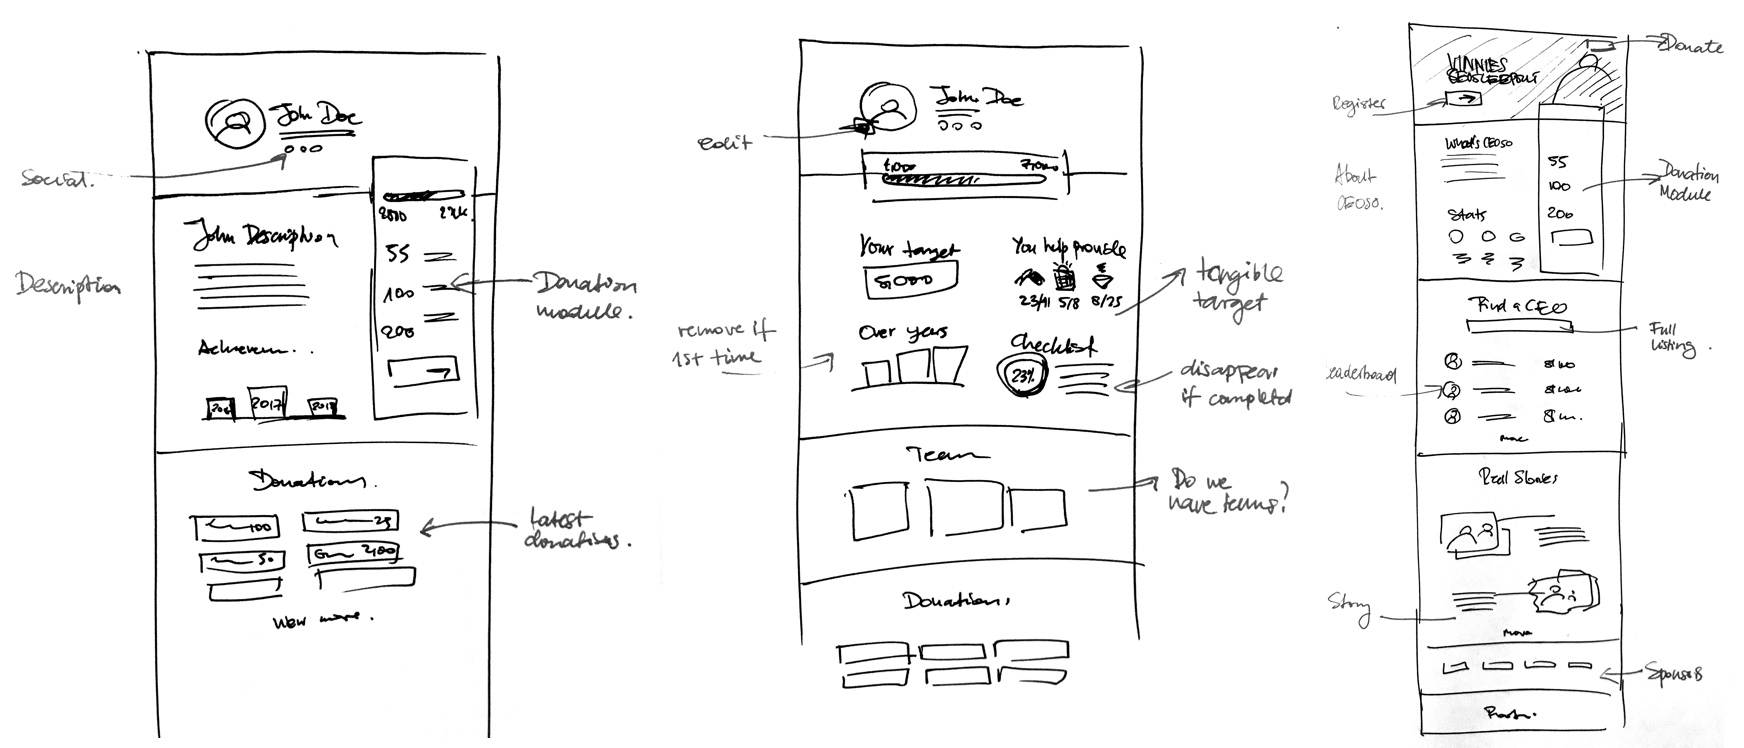 John Doe
Social.
2800
55
100
200
John Description
Description
Donation
module.
Achievem...
2017
Donations.
100
25
50
2,100
Latest
donations.
View more.
John Doe
edit
Your target
5,000
You help provide
23/41 5/8 8/25
tangible
target
remove if
1st time
Over years
Checklist
23%
disappear
if completed
Team
Do we
have teams?
Donations
VINNIES
CEOSLEEPOUT
Donate
Register
What's CEOSO
About
CEOSO.
55
100
200
Donation
Module
Stats
Find a CEO
Full
listing.
leaderboard
more
Real Stories
Story
more
Sponsors